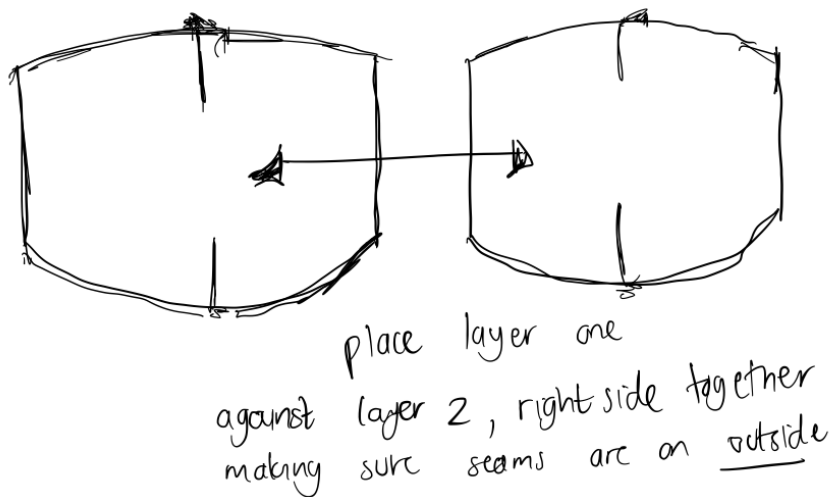 place layer one
against layer 2, right side together
making sure seams are on outside